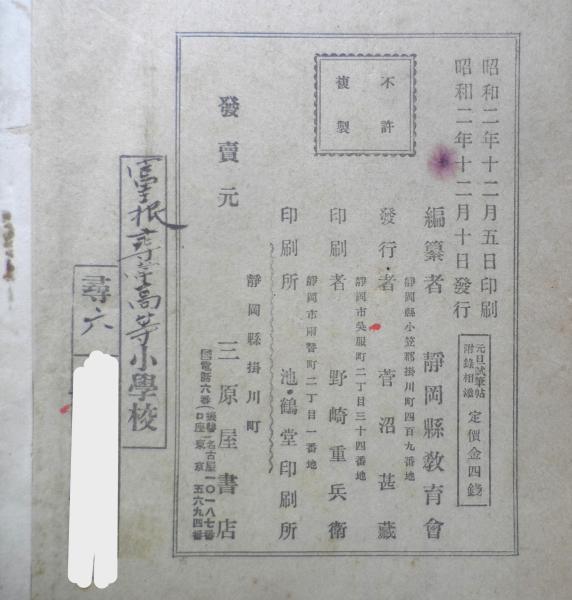 昭和二年十二月五日印刷
昭和二年十二月十日發行
元旦試筆帖
附錄相添
定價金四錢
不許
複製
編纂者 靜岡縣敎育會
靜岡縣小笠郡掛川町四百九番地
發行者 菅沼甚藏
靜岡市吳服町二丁目三十四番地
印刷者 野崎重兵衞
靜岡市兩替町二丁目一番地
印刷所 池鶴堂印刷所
靜岡縣掛川町
發賣元 三原屋書店
電話六番
振替名古屋一〇一八七番
口座東京五六九四番
尋常高等小學校
尋六